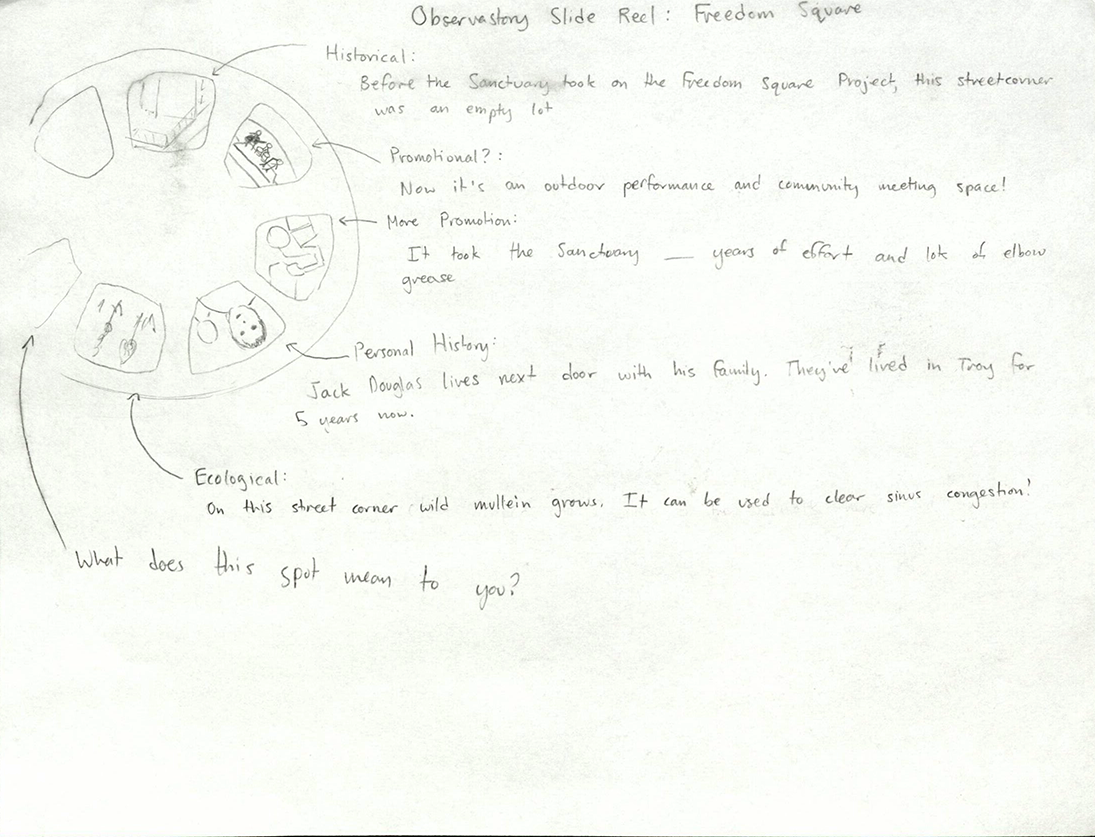 Observastory Slide Reel: Freedom Square
Historical:
Before the Sanctuary took on the Freedom Square Project, this streetcorner
was an empty lot
Promotional?:
Now it's an outdoor performance and community meeting space!
More Promotion:
It took the Sanctuary __ years of effort and lots of elbow
grease
Personal History:
Jack Douglas lives next door with his family. They've lived in Troy for
5 years now.
Ecological:
On this street corner wild mullein grows. It can be used to clear sinus congestion!
What does this spot mean to you?